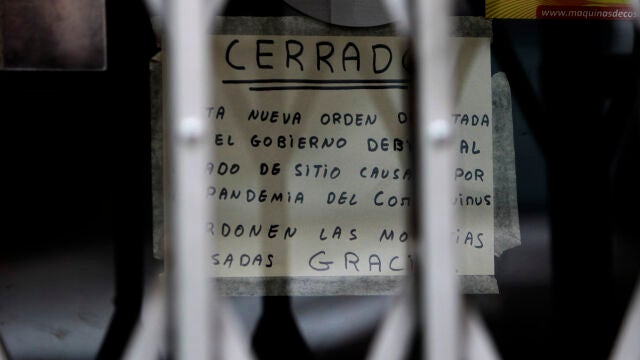 www.maquinasdecos
CERRADO
TA NUEVA ORDEN D TADA
EL GOBIERNO DEB AL
ADO DE SITIO CAUSA POR
PANDEMIA DEL Cor inus
RDONEN LAS MO IAS
SADAS GRACI